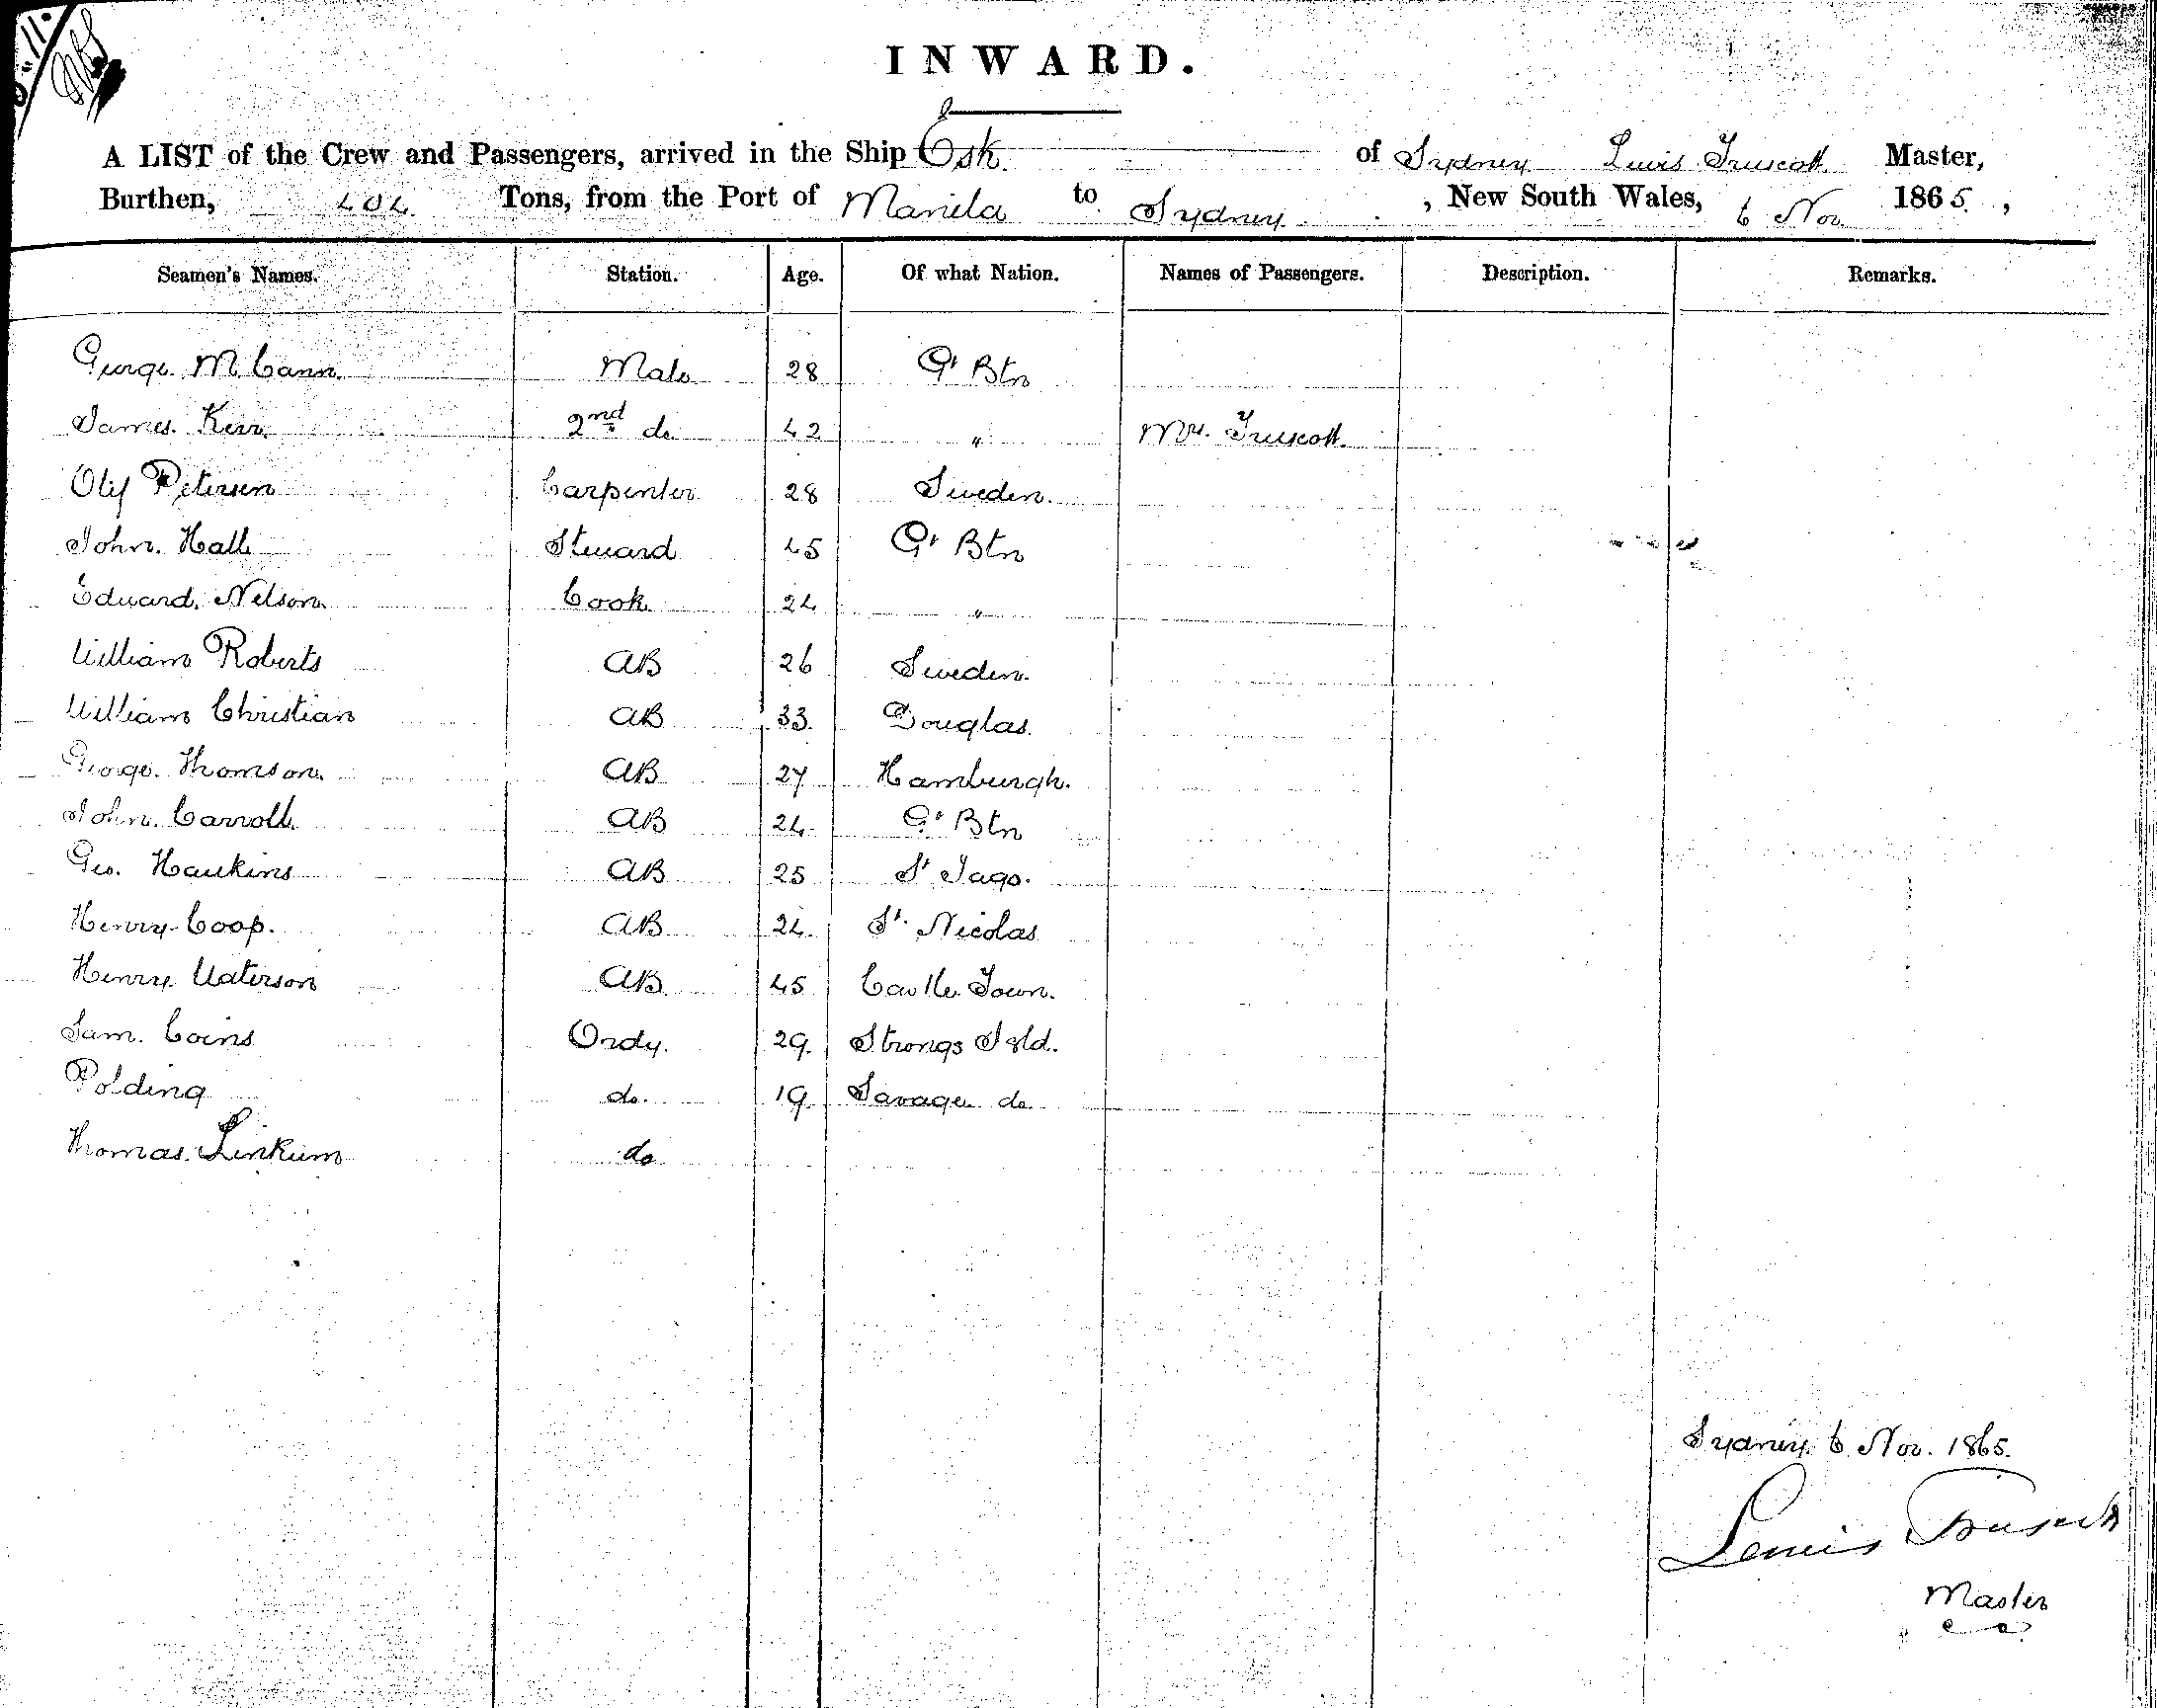 INWARD.
A LIST of the Crew and Passengers, arrived in the Ship Esk of Sydney Lewis Truscott Master,
Burthen, 404 Tons, from the Port of Manila to Sydney, New South Wales, 6 Nov 1865,
Seamen's Names. Station. Age. Of what Nation. Names of Passengers. Description. Remarks.
George McCann Mate 28 Gt Btn
James Kerr 2nd do 42 " Mrs. Truscott
Olif Petersen Carpenter 28 Sweden
John Hall Steward 45 Gt Btn
Edward Nelson Cook 24 "
William Roberts AB 26 Sweden
William Christian AB 33 Douglas
George Thomson AB 27 Hamburgh.
John Carroll AB 24 Gt Btn
Geo. Hawkins AB 25 St Jago.
Henry Coop. AB 24 St. Nicolas
Henry Waterson AB 45 Castle Town.
Sam. Coins Ordy. 29 Strongs Isld.
Polding do. 19 Savage do
Thomas Linkum do
Sydney 6 Nov. 1865.
Lewis Truscott
Master